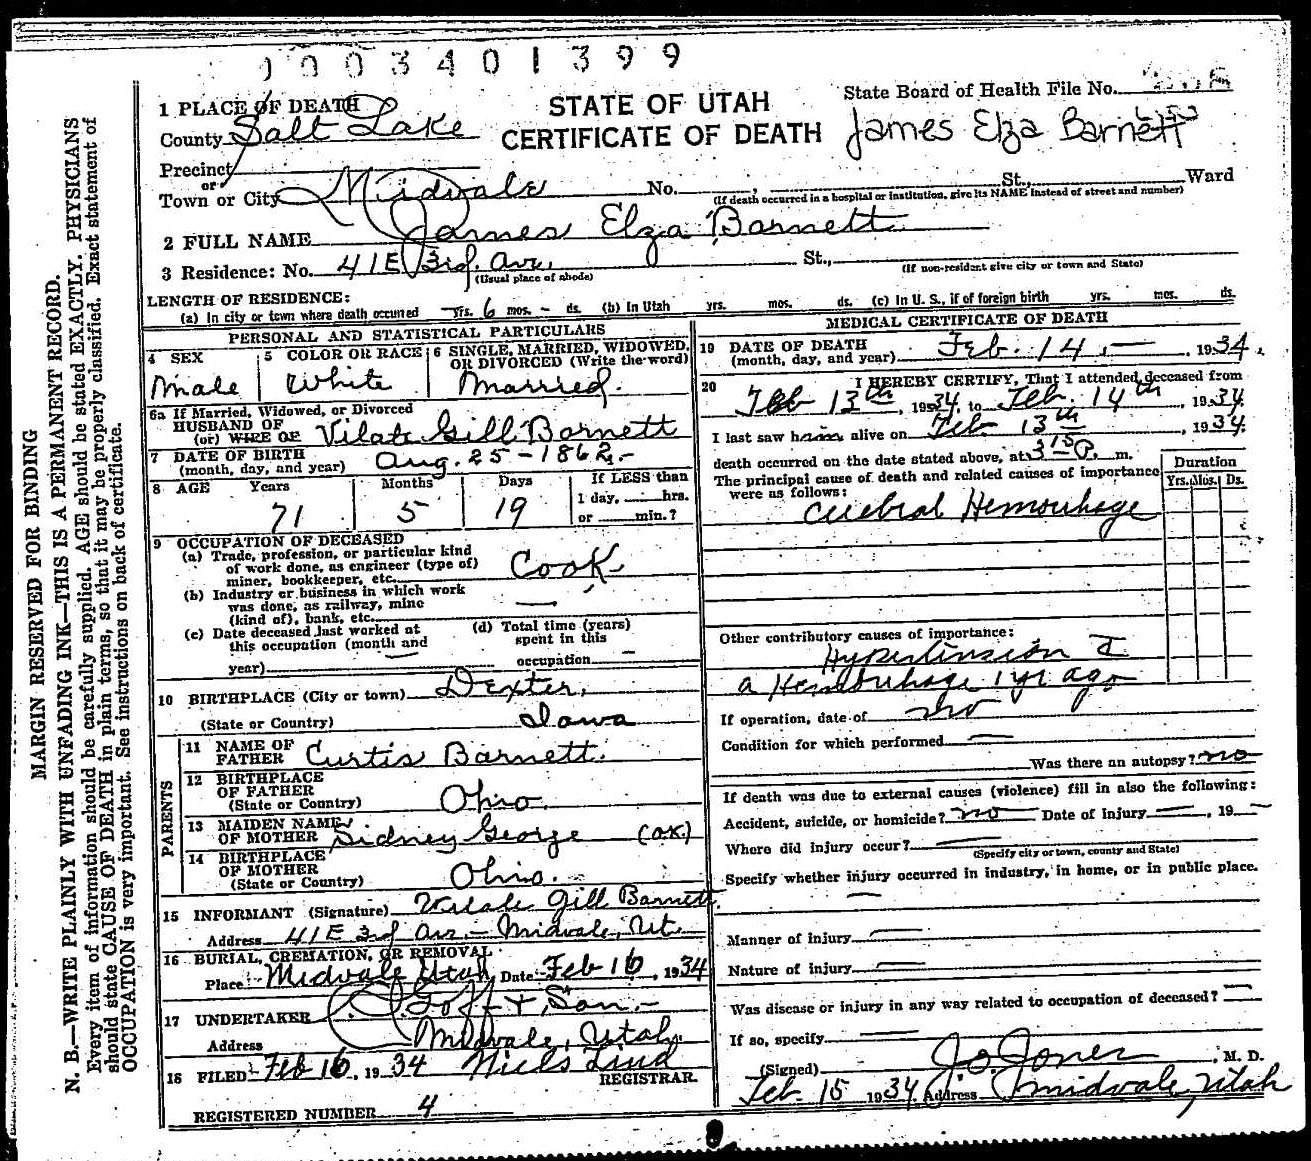 1003401399
STATE OF UTAH
CERTIFICATE OF DEATH
State Board of Health File No.
James Elza Barnett
1 PLACE OF DEATH
County Salt Lake
Precinct
or
Town or City Midvale No. , St., Ward
(If death occurred in a hospital or institution, give its NAME instead of street and number)
2 FULL NAME James Elza Barnett
3 Residence: No. 41 E 3rd. Ave. St.,
(Usual place of abode) (If non-resident give city or town and State)
LENGTH OF RESIDENCE:
(a) In city or town where death occurred — yrs. 6 mos. - ds. (b) In Utah yrs. mos. ds. (c) In U. S., if of foreign birth yrs. mos. ds.
PERSONAL AND STATISTICAL PARTICULARS
4 SEX Male
5 COLOR OR RACE White
6 SINGLE, MARRIED, WIDOWED, OR DIVORCED (Write the word) Married.
6a If Married, Widowed, or Divorced
HUSBAND OF
(or) WIFE OF Vilate Gill Barnett
7 DATE OF BIRTH
(month, day, and year) Aug. 25 - 1862. -
8 AGE Years Months Days If LESS than
71 5 19 1 day, hrs.
or min.?
9 OCCUPATION OF DECEASED
(a) Trade, profession, or particular kind
of work done, as engineer (type of)
miner, bookkeeper, etc. Cook
(b) Industry or business in which work
was done, as railway, mine
(kind of), bank, etc. —
(c) Date deceased last worked at
this occupation (month and
year) —
(d) Total time (years)
spent in this
occupation —
10 BIRTHPLACE (City or town) Dexter,
(State or Country) Iowa
PARENTS
11 NAME OF
FATHER Curtis Barnett.
12 BIRTHPLACE
OF FATHER
(State or Country) Ohio.
13 MAIDEN NAME
OF MOTHER Sidney George (OK.)
14 BIRTHPLACE
OF MOTHER
(State or Country) Ohio.
15 INFORMANT (Signature) Vilate Gill Barnett.
Address 41 E 3rd Ave - Midvale, Ut.
16 BURIAL, CREMATION, OR REMOVAL
Place Midvale Utah Date Feb 16, 1934
17 UNDERTAKER Goff & Son. -
Address Midvale, Utah.
18 FILED Feb 16, 1934 Niels Lind
REGISTRAR.
REGISTERED NUMBER 4
MEDICAL CERTIFICATE OF DEATH
19 DATE OF DEATH
(month, day, and year) Feb. 14, — , 1934.
20 I HEREBY CERTIFY, That I attended deceased from
Feb 13th, 1934, to Feb. 14th, 1934.
I last saw him alive on Feb. 13th, 1934.
death occurred on the date stated above, at 3 15 P. m.
The principal cause of death and related causes of importance
were as follows:
Duration
Yrs. Mos. Ds.
Cerebral Hemorrhage
Other contributory causes of importance:
Hypertension
a Hemorrhage 1 yr ago
If operation, date of no
Condition for which performed —
Was there an autopsy? no
If death was due to external causes (violence) fill in also the following:
Accident, suicide, or homicide? no Date of injury — , 19 —
Where did injury occur? —
(Specify city or town, county and State)
Specify whether injury occurred in industry, in home, or in public place.
—
Manner of injury —
Nature of injury —
Was disease or injury in any way related to occupation of deceased? —
If so, specify —
(Signed) Jo Jones , M. D.
Feb. 15 1934 Address Midvale, Utah
MARGIN RESERVED FOR BINDING
N. B.—WRITE PLAINLY WITH UNFADING INK—THIS IS A PERMANENT RECORD.
Every item of information should be carefully supplied. AGE should be stated EXACTLY. PHYSICIANS
should state CAUSE OF DEATH in plain terms, so that it may be properly classified. Exact statement of
OCCUPATION is very important. See instructions on back of certificate.